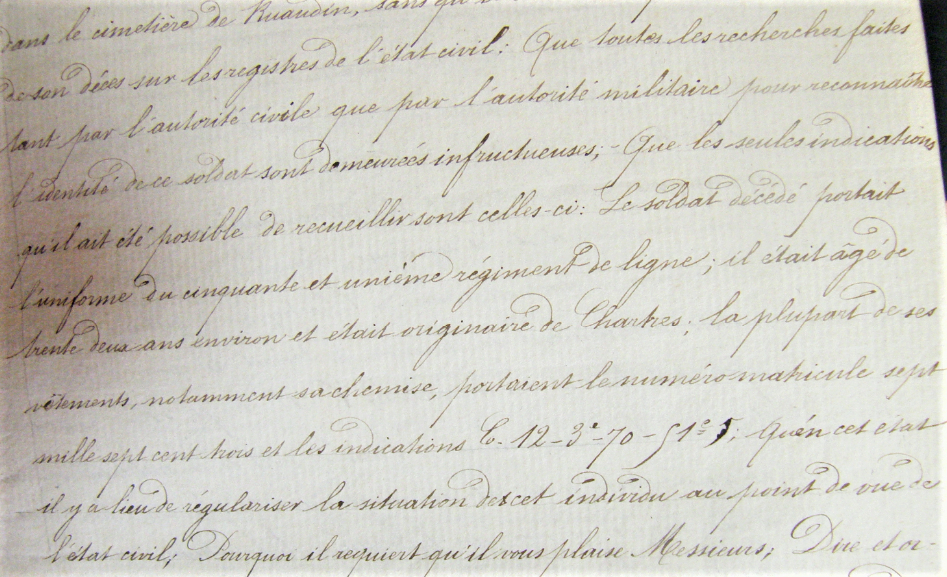 dans le cimetière de Ruaudin, sans qu'
de son décès sur les registres de l'état civil: Que toutes les recherches faites
tant par l'autorité civile que par l'autorité militaire pour reconnaître
l'identité de ce soldat sont demeurées infructueuses; - Que les seules indications
qu'il ait été possible de recueillir sont celles-ci: Le soldat décédé portait
l'uniforme du cinquante et unième régiment de ligne; il était âgé de
trente deux ans environ et etait originaire de Chartres; la plupart de ses
vêtements, notamment sa chemise, portaient le numéro matricule sept
mille sept cent trois et les indications C- 12 - 3e - 70 - 51e Qu'en cet état
il y a lieu de régulariser la situation de cet individu au point de vue de
l'état civil; Pourquoi il requiert qu'il vous plaise Messieurs; Dire et or-